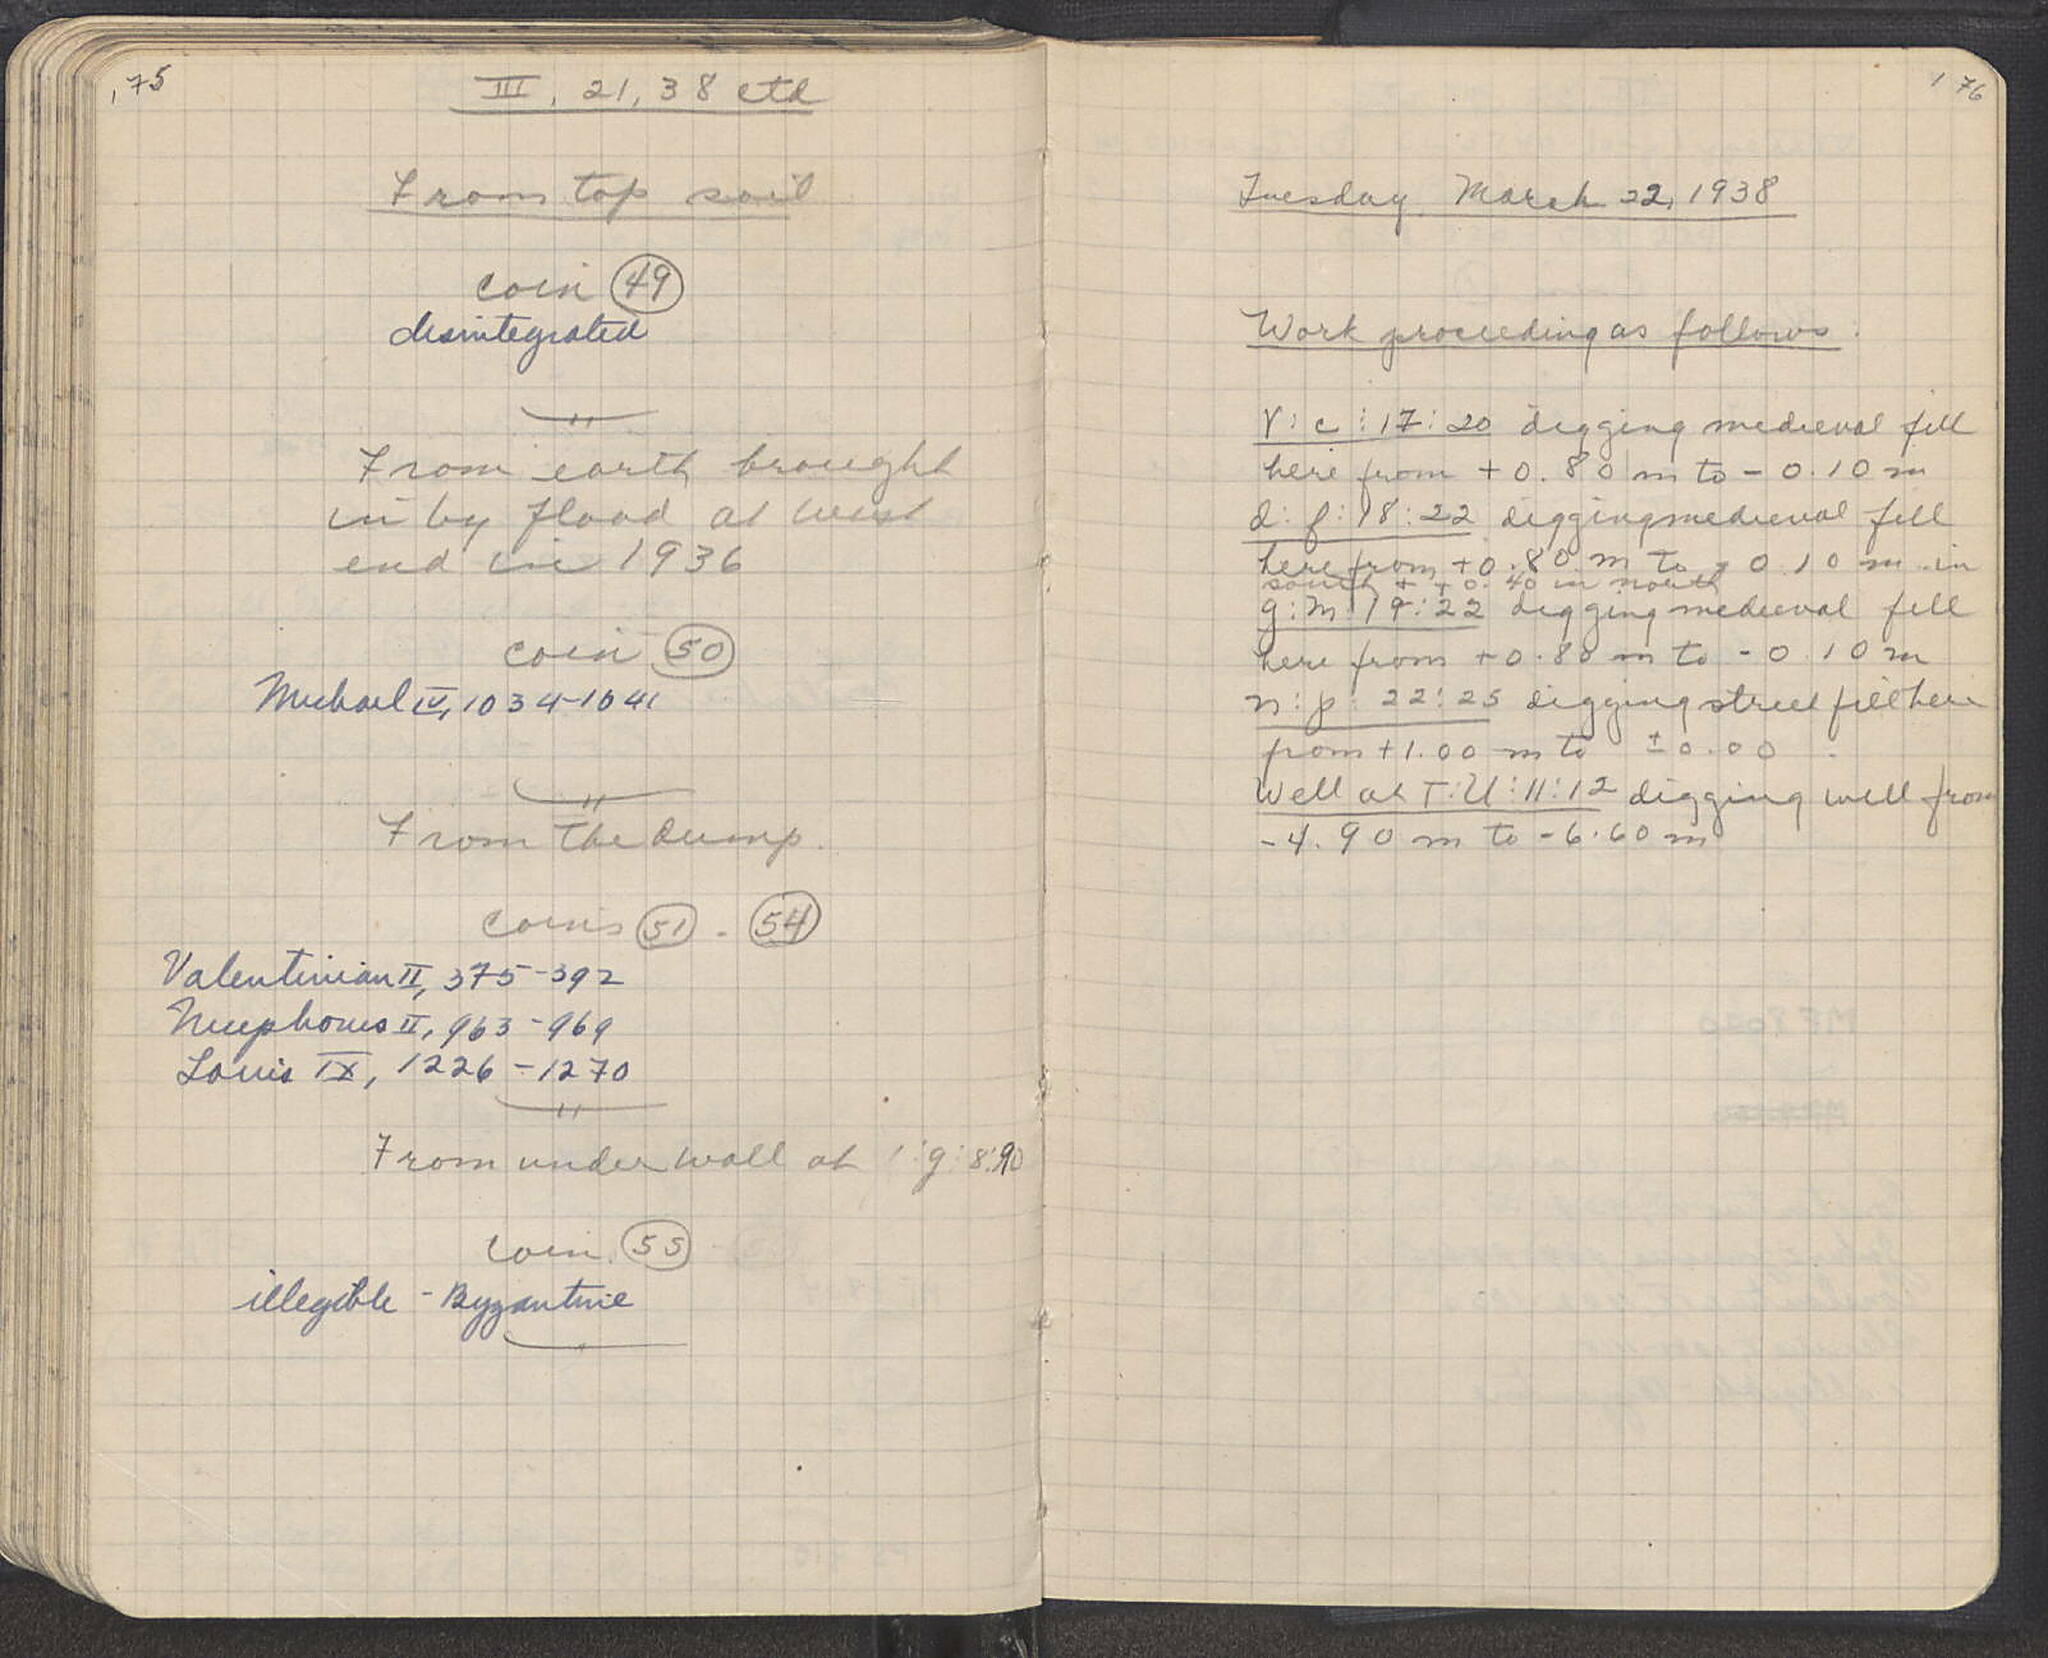 175
III, 21, 38 ctd
From top soil
coin 49
disintegrated
From earth brought
in by flood at west
end in 1936
coin 50
Michael IV, 1034-1041
From the dump.
coins 51 - 54
Valentinian II, 375-392
Nicephorus II, 963-969
Louis IX, 1226-1270
From under wall at g:8:
coin 55
illegible - Byzantine
176
Tuesday, March 22, 1938
Work proceeding as follows.
c:17:20 digging medieval fill
here from +0.80 m to -0.10 m
d:f:18:22 digging medieval fill
here from +0.80 m to -0.10 m in
south + +0.40 in north
g:m:19:22 digging medieval fill
here from +0.80 m to -0.10 m
n:p:22:25 digging street fill here
from +1.00 m to ±0.00
Well at T:U:11:12 digging well from
-4.90 m to -6.60 m